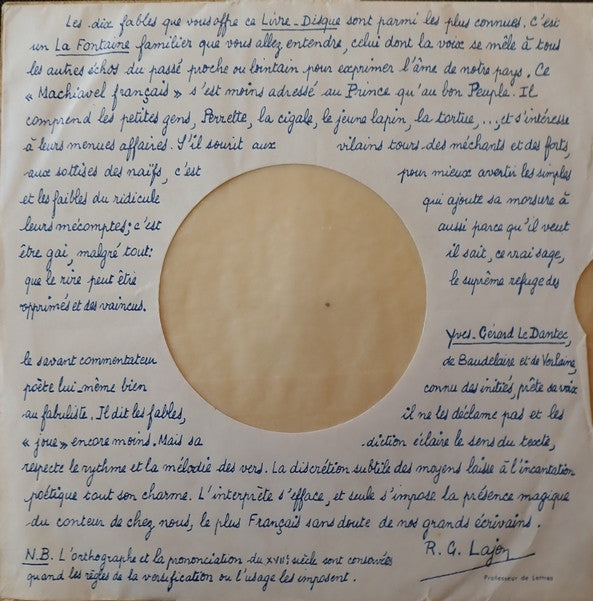 Les dix fables que vous offre ce Livre-Disque sont parmi les plus connues. C'est
un La Fontaine familier que vous allez entendre, celui dont la voix se mêle à tous
les autres échos du passé proche ou lointain pour exprimer l'âme de notre pays. Ce
« Machiavel français » s'est moins adressé au Prince qu'au bon Peuple. Il
comprend les petites gens, Perrette, la cigale, le jeune lapin, la tortue, ..., et s'intéresse
à leurs menues affaires. S'il sourit aux vilains tours des méchants et des forts,
aux sottises des naïfs, c'est pour mieux avertir les simples
et les faibles du ridicule qui ajoute sa morsure à
leurs mécomptes; c'est aussi parce qu'il veut
être gai, malgré tout: il sait, ce vrai sage,
que le rire peut être le suprême refuge des
opprimés et des vaincus.
Yves-Gérard Le Dantec,
le savant commentateur de Baudelaire et de Verlaine,
poète lui-même bien connu des initiés, prête sa voix
au fabuliste. Il dit les fables, il ne les déclame pas et les
« joue » encore moins. Mais sa diction éclaire le sens du texte,
respecte le rythme et la mélodie des vers. La discrétion subtile des moyens laisse à l'incantation
poétique tout son charme. L'interprète s'efface, et seule s'impose la présence magique
du conteur de chez nous, le plus Français sans doute de nos grands écrivains.
R. G. Lajon
Professeur de Lettres
N.B. L'orthographe et la prononciation du XVIIe siècle sont conservées
quand les règles de la versification ou l'usage les imposent.